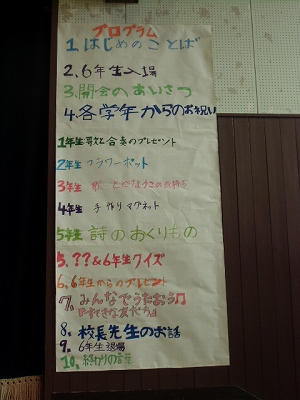 プログラム
1.はじめのことば
2.6年生入場
3.開会のあいさつ
4.各学年からのお祝い
1年生 歌と合奏のプレゼント
2年生 フラワーポット
3年生
4年生 手作りマグネット
5年生 詩のおくりもの
5.??&6年生クイズ
6.6年生からのプレゼント
7.みんなでうたおう♫
『すてきな友だち』
8.校長先生のお話
9.6年生退場
10.終わりの言葉